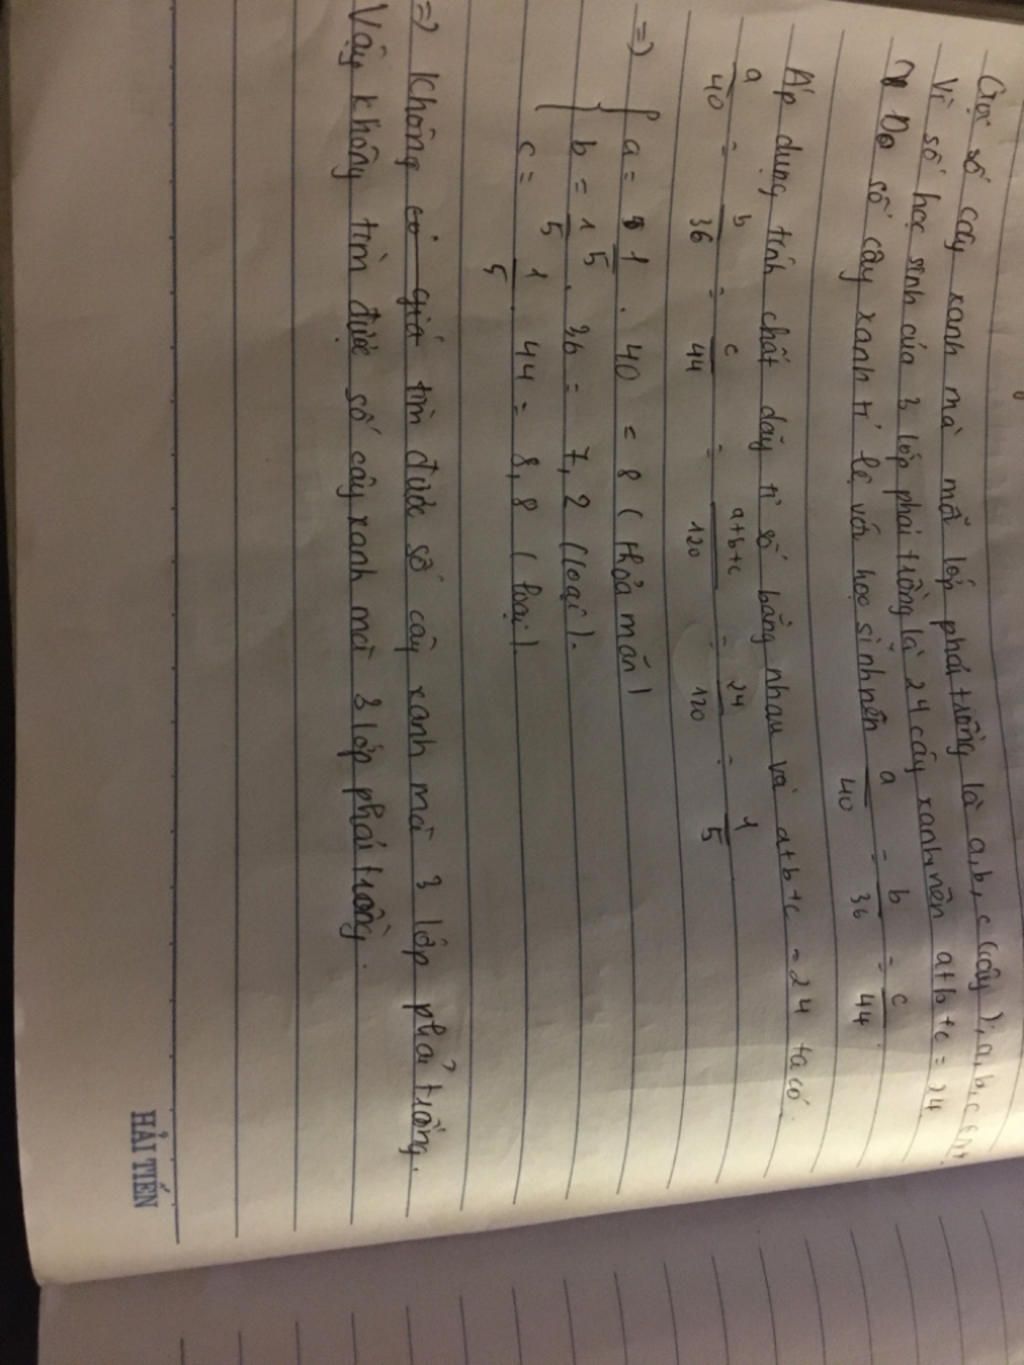 Gọi số cây xanh mà mỗi lớp phải trồng là a, b, c (cây); a, b, c ∈ N*.
Vì số học sinh của 3 lớp phải trồng là 24 cây xanh, nên a+b+c = 24
Do số cây xanh tỉ lệ với học sinh nên a/40 = b/36 = c/44.
Áp dụng tính chất dãy tỉ số bằng nhau và a+b+c = 24 ta có.
a/40 = b/36 = c/44 = a+b+c/120 = 24/120 = 1/5
=> { a = 1/5 . 40 = 8 (thỏa mãn)
b = 1/5 . 36 = 7,2 (loại).
c = 1/5 . 44 = 8,8 (loại).
=> Không có giá tìm được số cây xanh mà 3 lớp phải trồng.
Vậy không tìm được số cây xanh mà 3 lớp phải trồng.
HẢI TIẾN